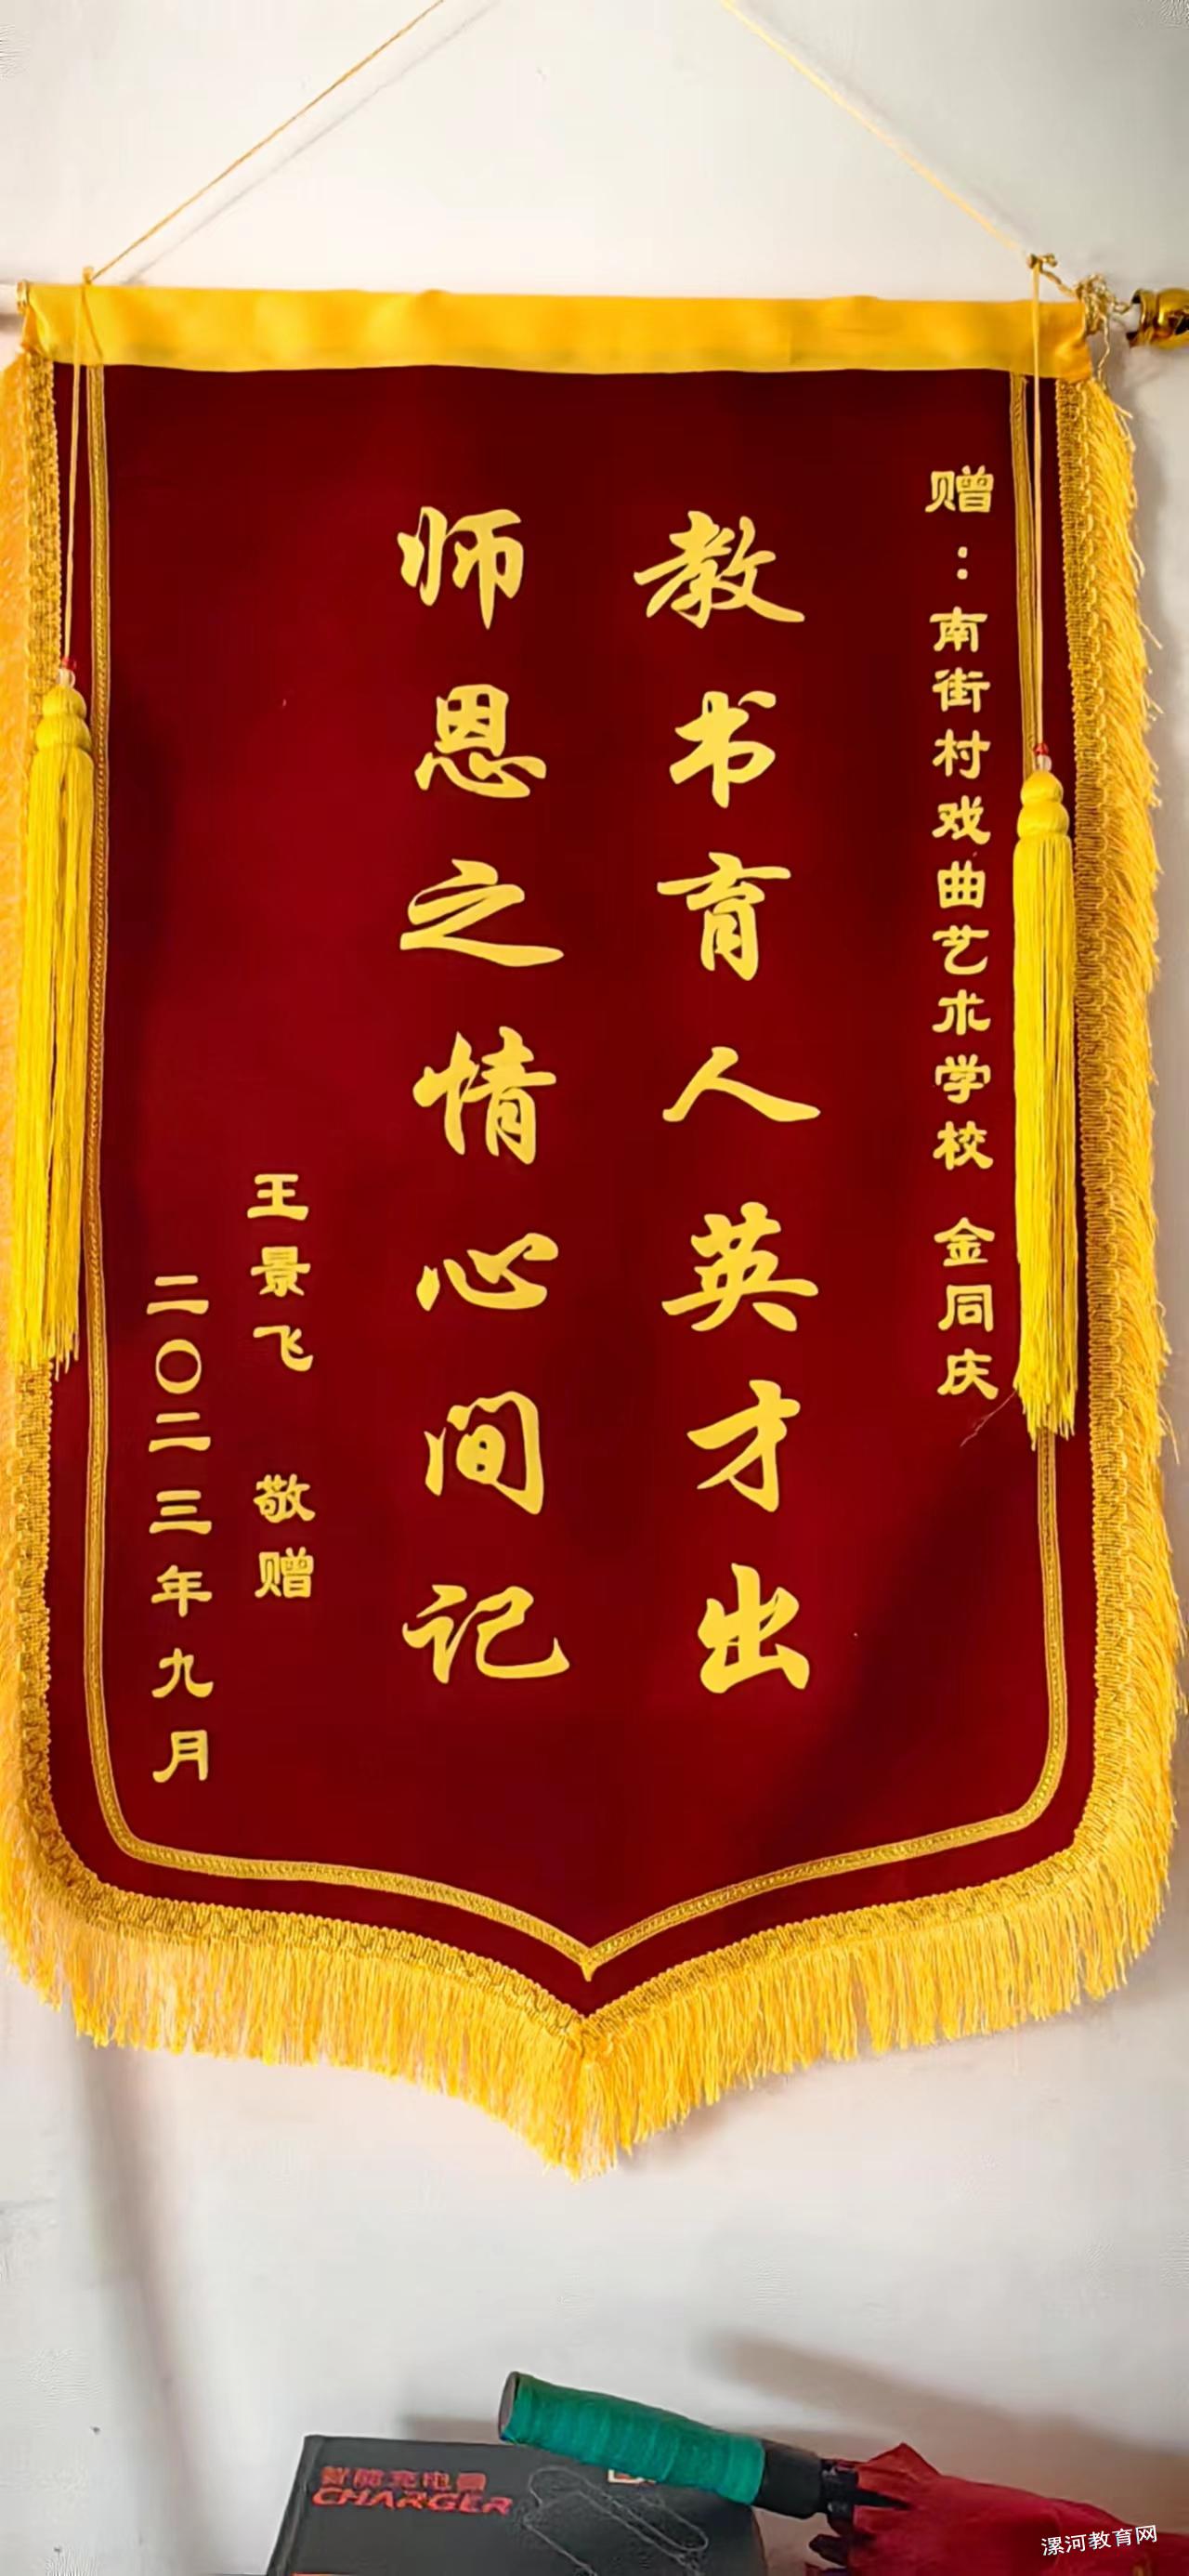 赠：南街村戏曲艺术学校 金同庆
教书育人英才出
师恩之情心间记
王景飞 敬赠
二〇二三年九月
智能充电器
CHARGER
漯河教育网